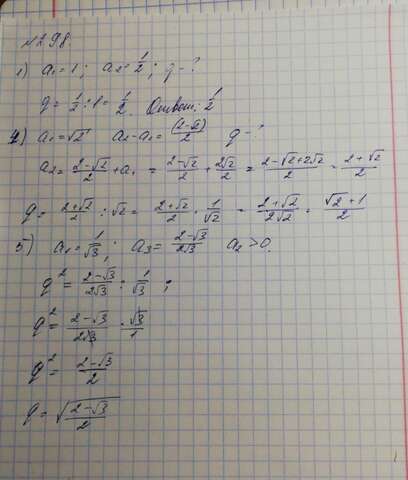 №298.
1) a₁ = 1; a₂ = 1/2; q - ?
q = 1/2 : 1 = 1/2. Ответ: 1/2
4) a₁ = √2 a₂ - a₁ = (2-√2)/2 q - ?
a₂ = (2-√2)/2 + a₁ = (2-√2)/2 + 2√2/2 = (2-√2+2√2)/2 = (2+√2)/2
q = (2+√2)/2 : √2 = (2+√2)/2 · 1/√2 = (2+√2)/(2√2) = (√2+1)/2
5) a₁ = 1/√3; a₃ = (2-√3)/(2√3) a₂ > 0.
q² = (2-√3)/(2√3) : 1/√3 ;
q² = (2-√3)/(2√3) · √3/1
q² = (2-√3)/2
q = √((2-√3)/2)